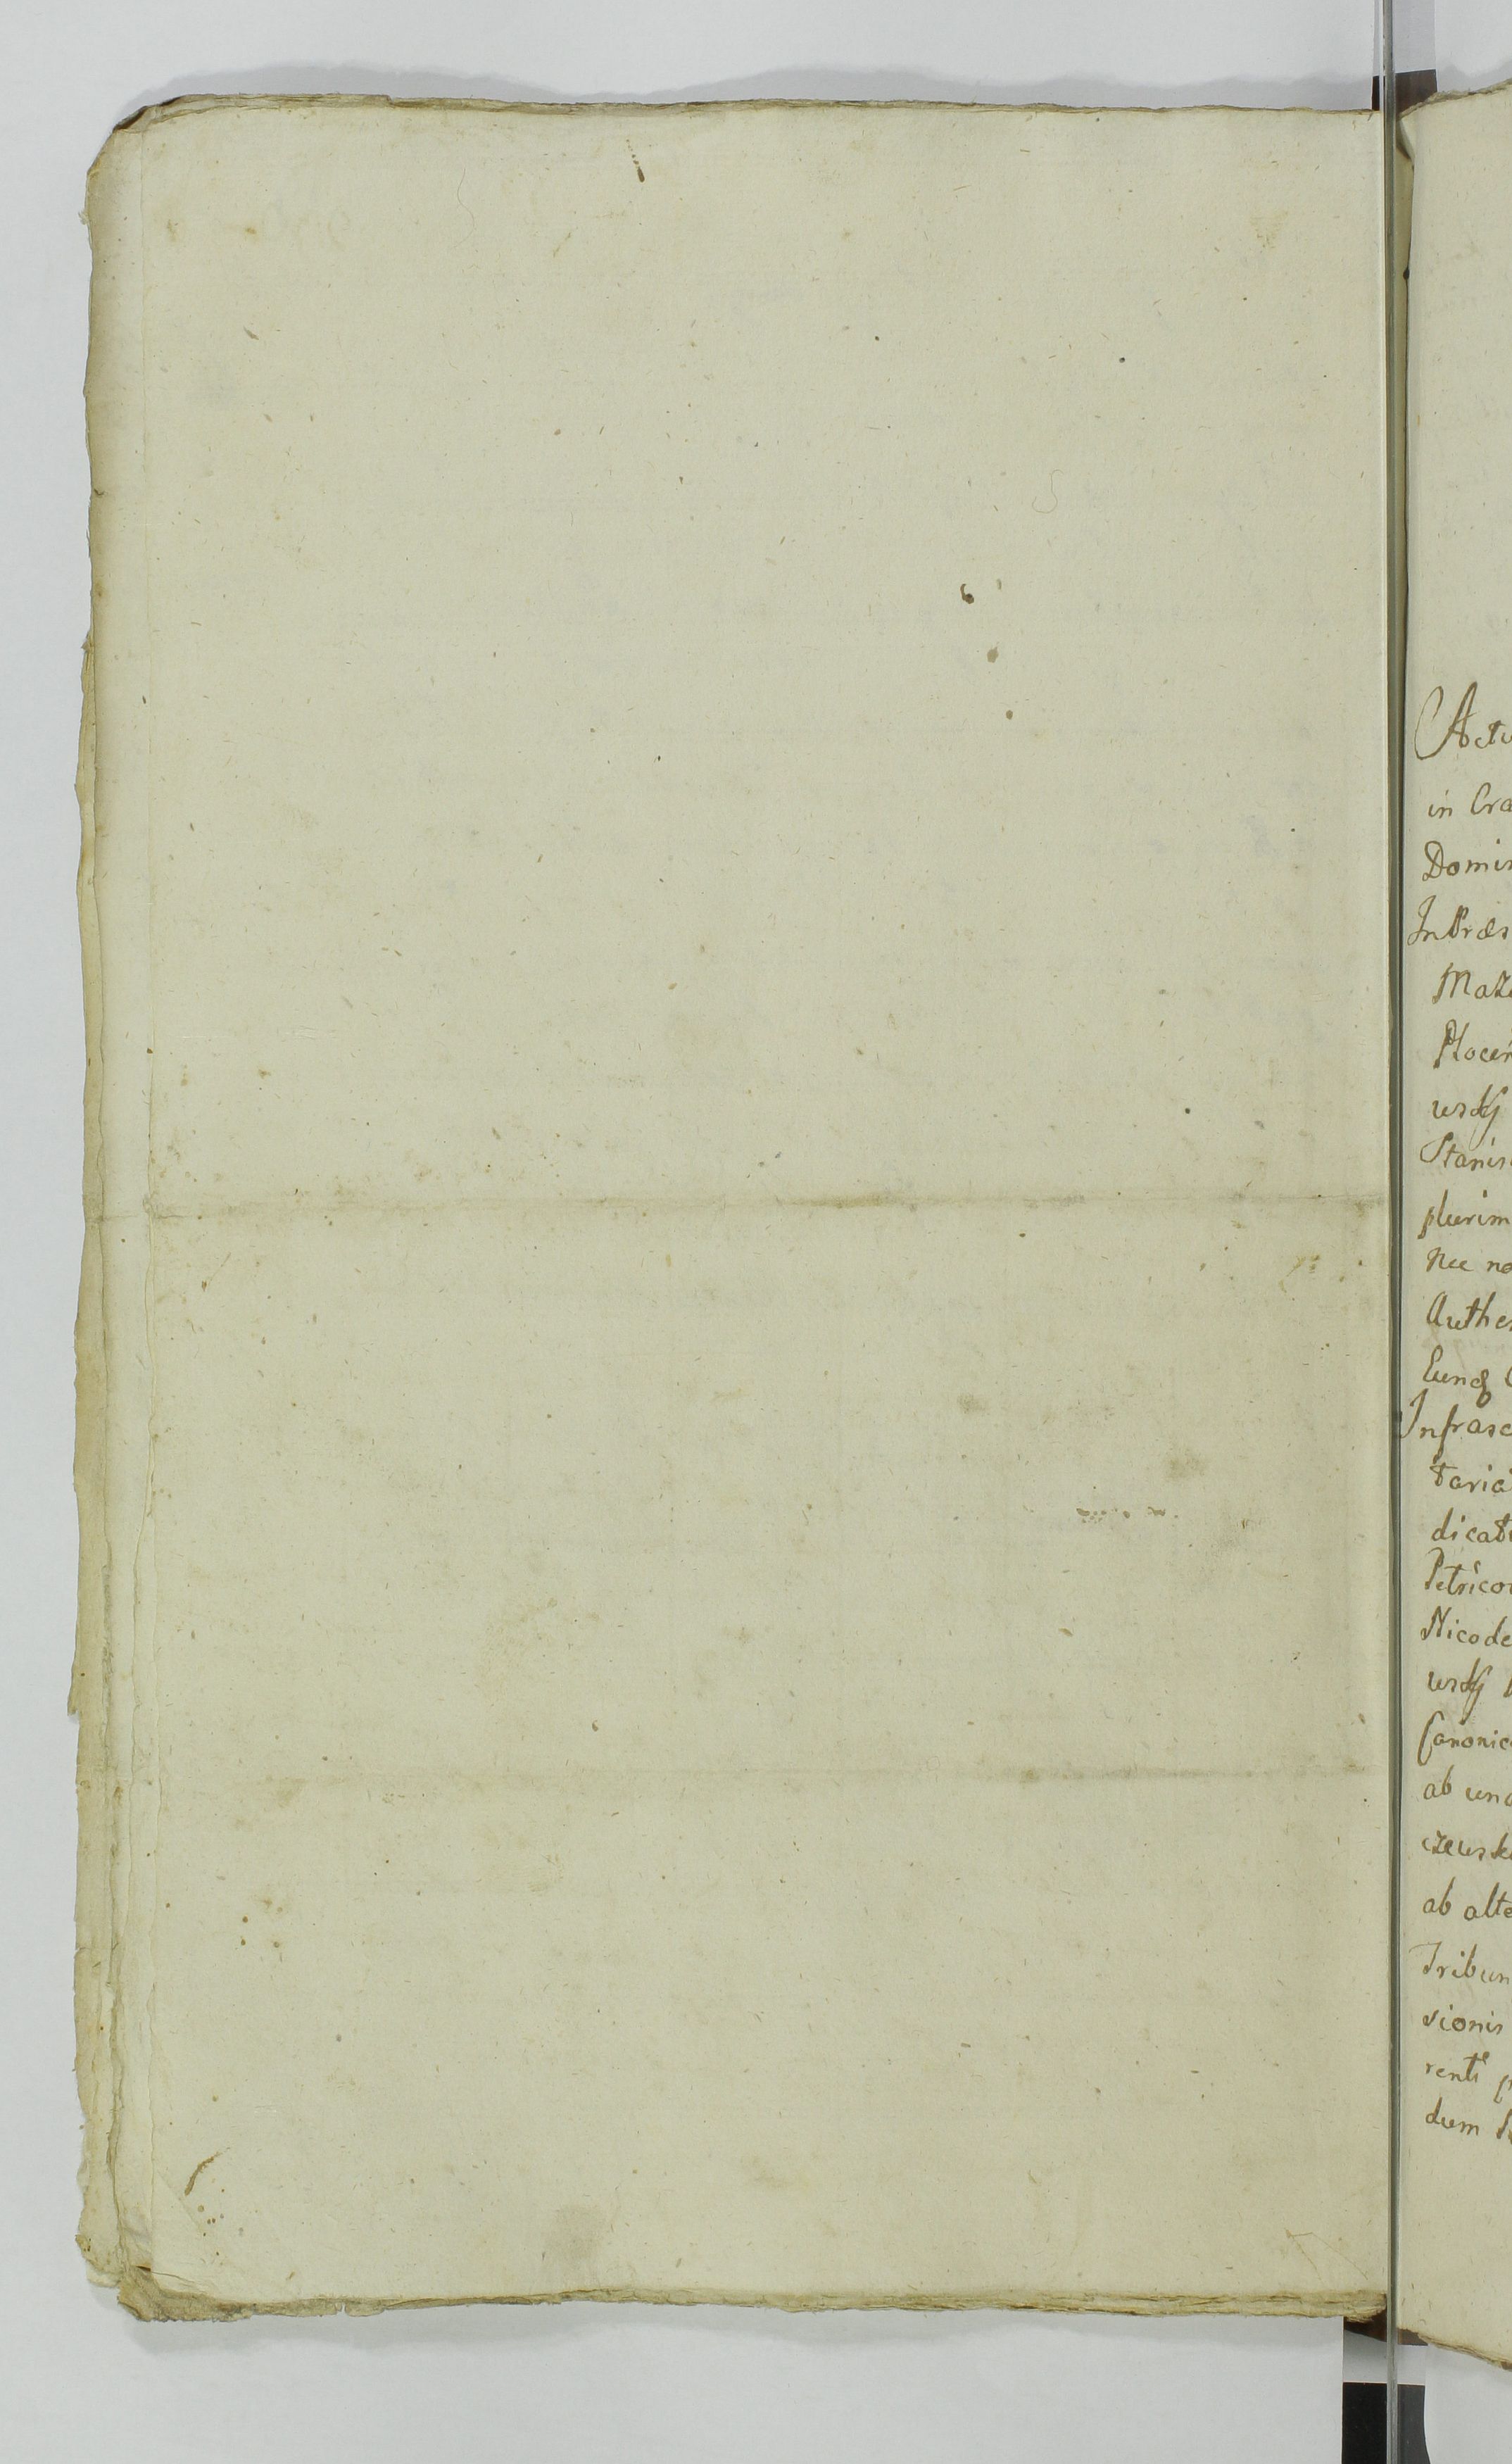 Actu
in Cra
Domin
In Præs
Maze
Plocen
wskij
Stanis
plurim
Nec no
Authe
Eunq
Infrasc
taria
dicat
Petrico
Nicode
wskij
Canonic
ab una
czewsk
ab alte
Tribun
sionis
renti p
dum